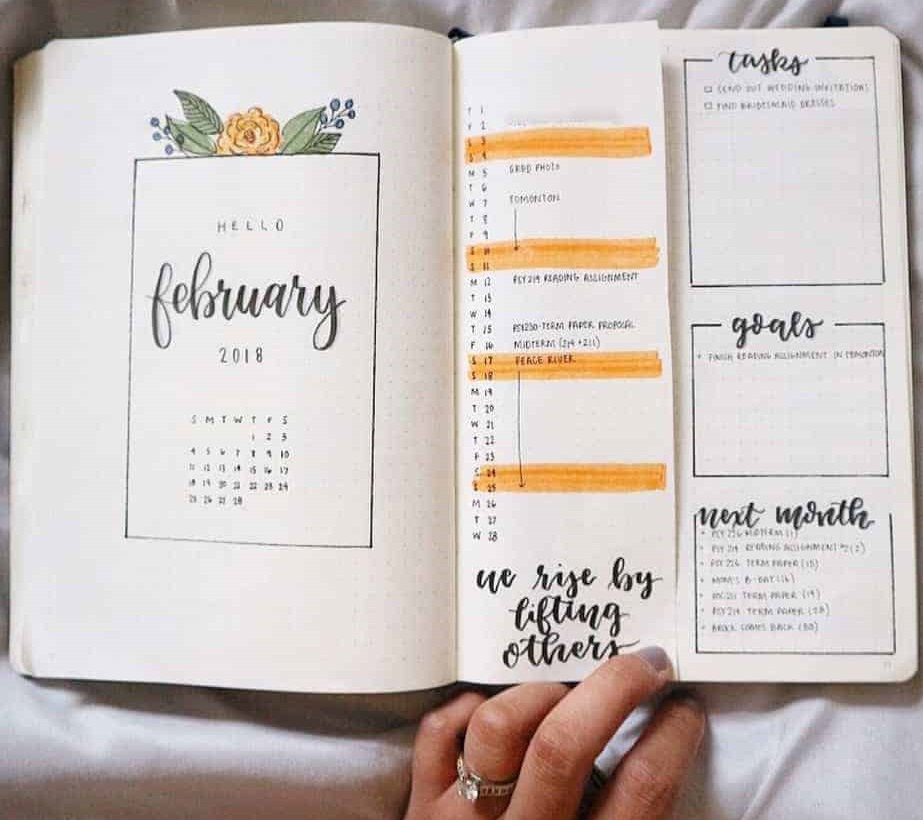 HELLO
february
2018
S M T W T F S
1 2 3
4 5 6 7 8 9 10
11 12 13 14 15 16 17
18 19 20 21 22 23 24
25 26 27 28
T 1
F 2
S 3
S 4
M 5 GRAD PHOTO
T 6
W 7 EDMONTON
T 8
F 9
S 10
S 11
M 12 PSY219 READING ASSIGNMENT
T 13
W 14
T 15 PSY230-TERM PAPER PROPOSAL
F 16 MIDTERM
S 17 PEACE RIVER
S 18
M 19
T 20
W 21
T 22
F 23
S 24
S 25
M 26
T 27
W 28
we rise by
lifting
others
tasks
SEND OUT WEDDING INVITATIONS
FIND BRIDESMAID DRESSES
goals
• FINISH READING ASSIGNMENT IN EDMONTON
next month
• MIDTERM (1)
• PSY 219 READING ASSIGNMENT #2 (2)
• TERM PAPER (15)
• MOM'S B-DAY (16)
• TERM PAPER (19)
• PSY219 TERM PAPER
• BROCK COMES BACK (30)